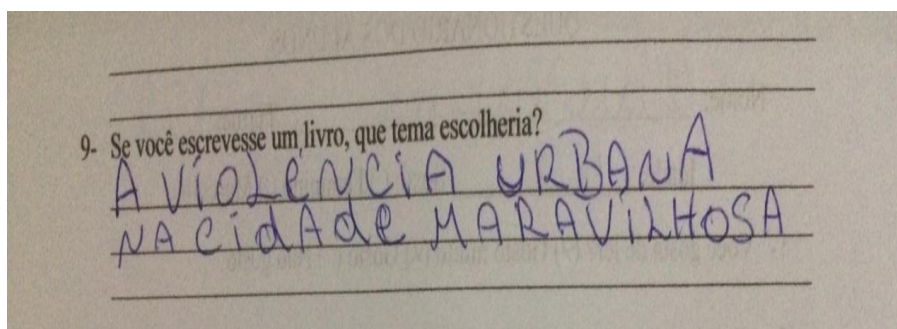 9- Se você escrevesse um livro, que tema escolheria?
A VIOLENCIA URBANA
NA CIDADE MARAVILHOSA